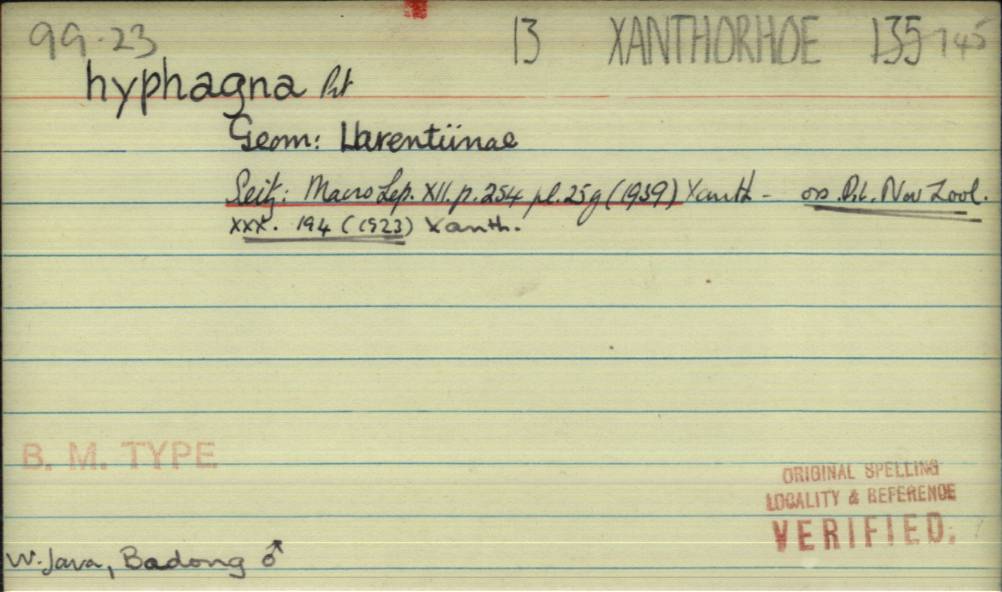 99.23 13 XANTHORHOE 135 745
hyphagna Prt
Geom: Larentiinae
Seitz: Macro Lep. XII. p. 254 pl. 25g (1939) Xanth - Prt. Nov Zool.
XXX. 194 (1923) Xanth.
B. M. TYPE
ORIGINAL SPELLING
LOCALITY & REFERENCE
VERIFIED.
W. Java, Badong ♂